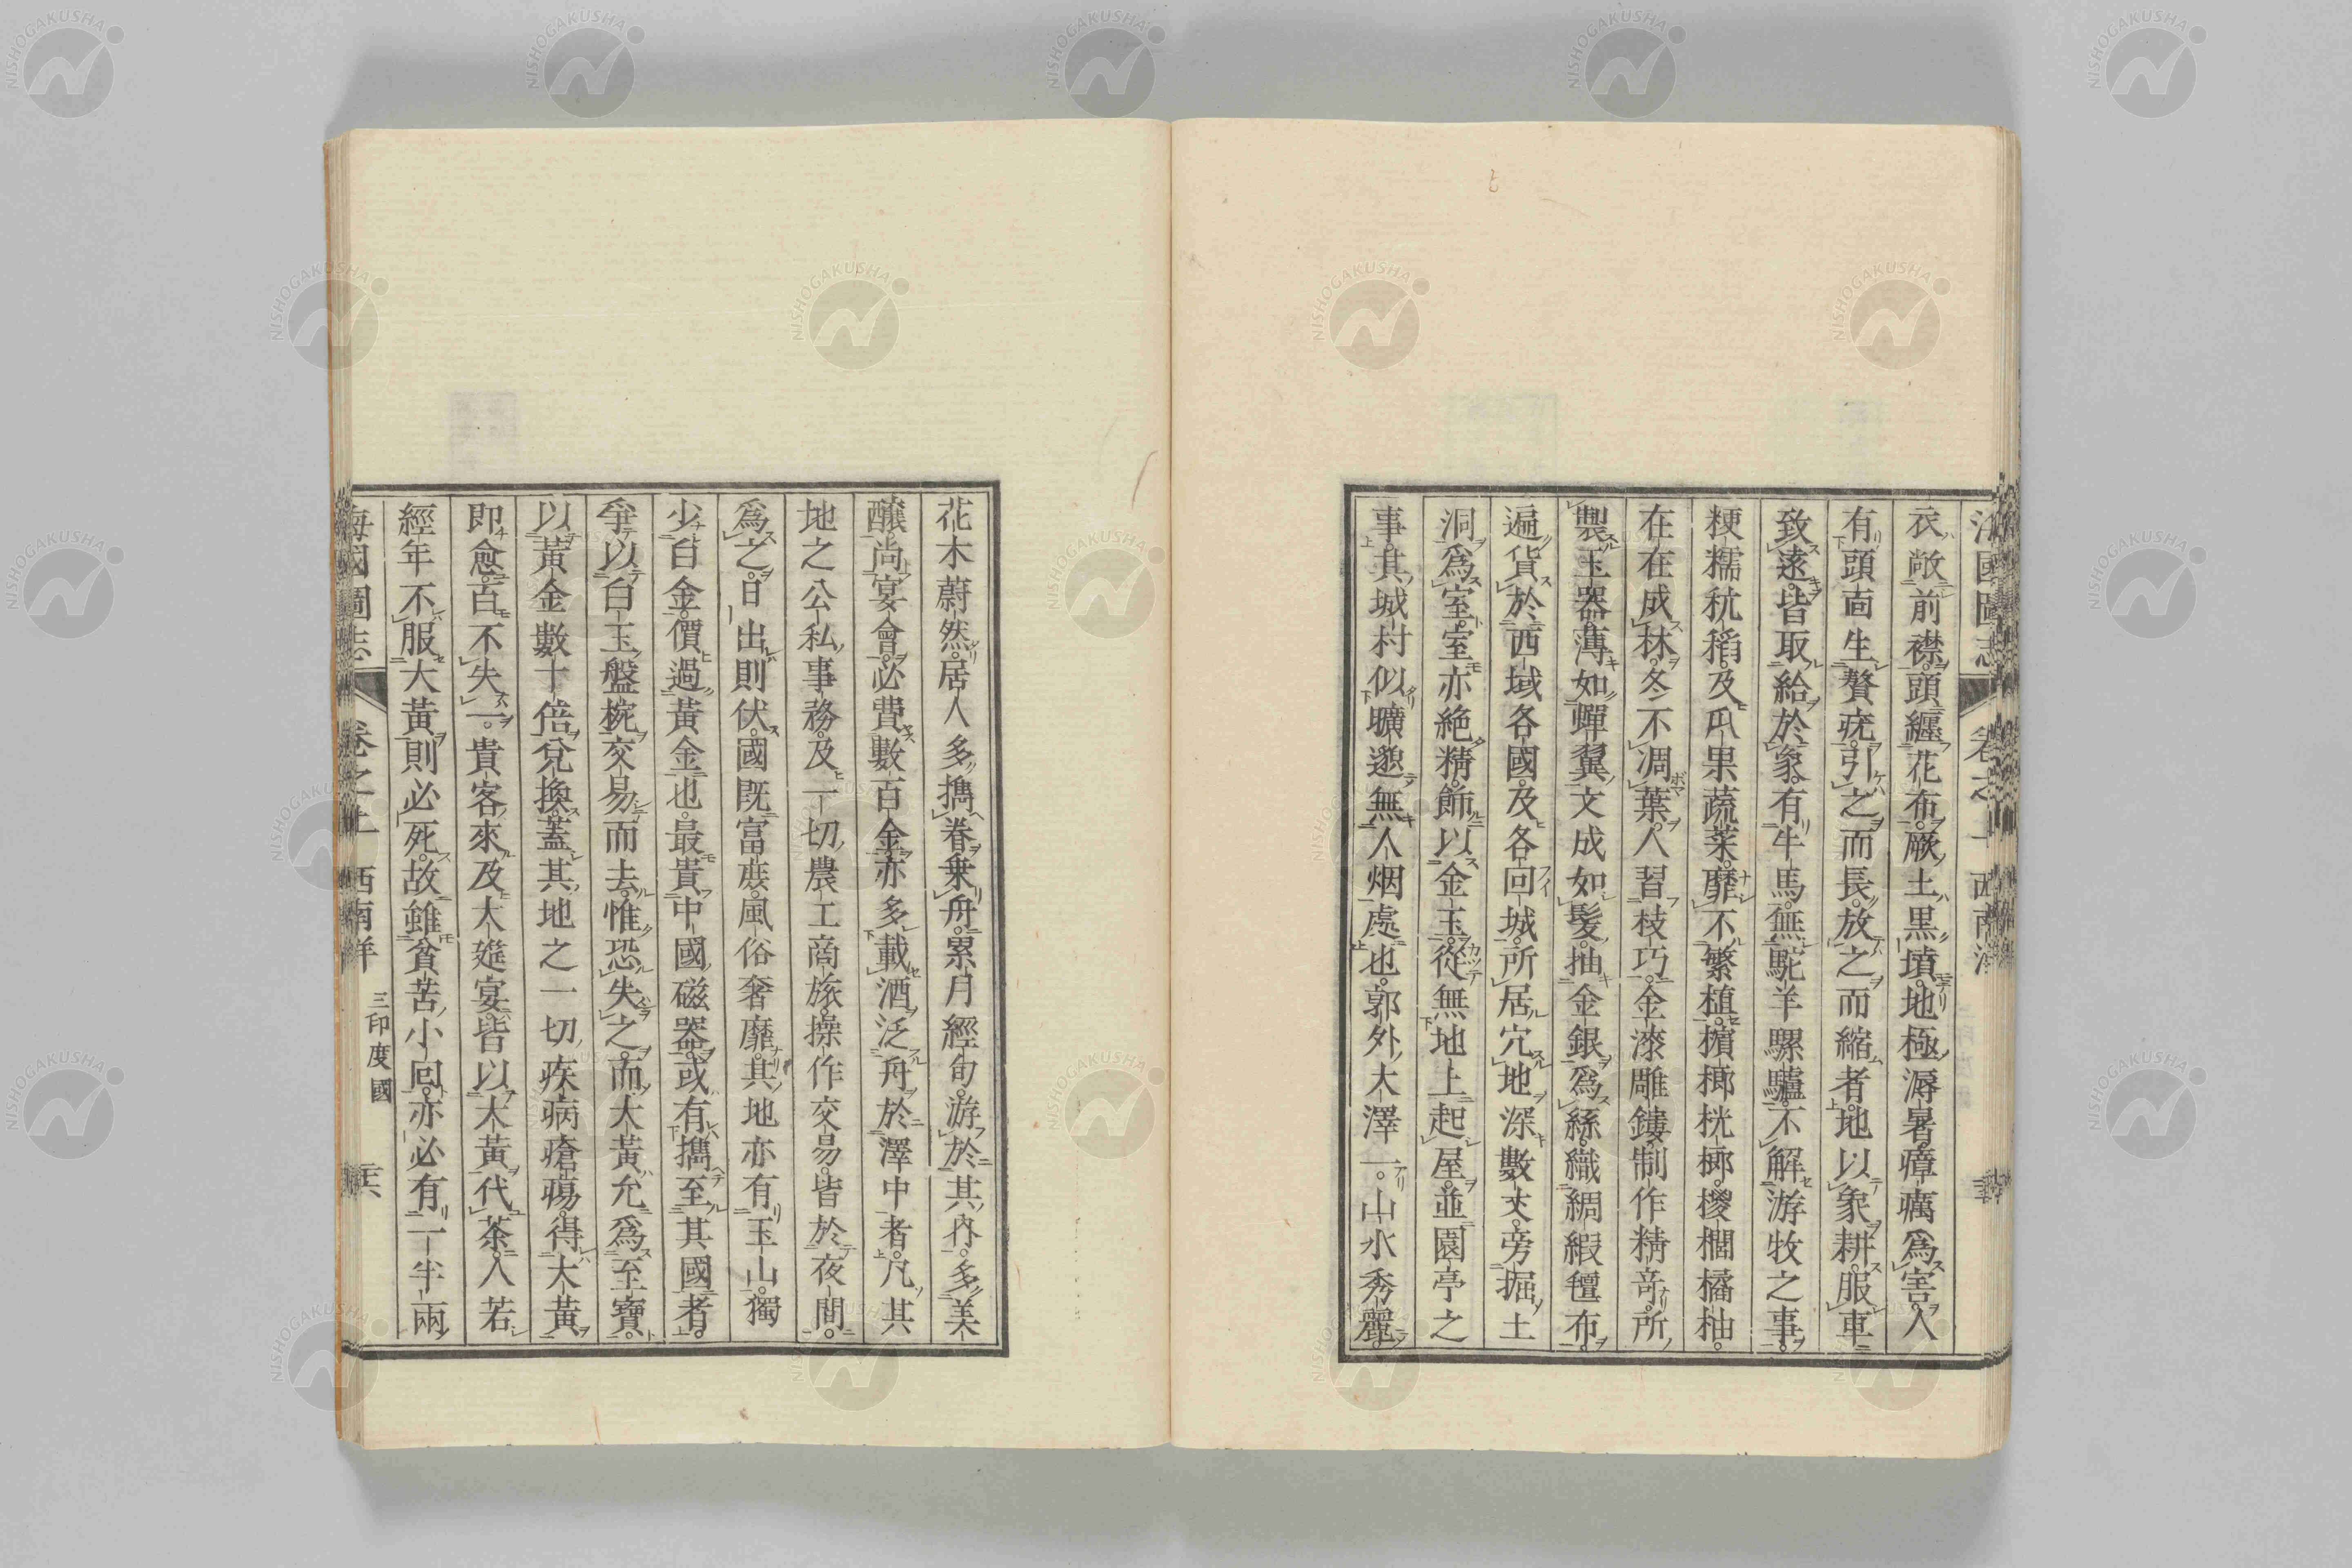 衣敞前襟。頭纏花布。厥土黒墳。地極溽暑。瘴癘爲害。人
有頭面生贅疣。引之而長。放之而縮者。地以象耕。服車
致遠。皆取給於象。有牛馬。無駝羊騾驢。不解游牧之事。
粳糯秔稻。及瓜果蔬菜。靡不繁植。檳榔桄榔。椶櫚橘柚。
在在成林。冬不凋葉。人習枝巧。金漆雕鏤。制作精奇。所
製玉器。薄如蟬翼。文成如髮。抽金銀爲絲。織綢緞氊布。
遍貨於西域各國。及各回城。所居穴地深數丈。旁掘土
洞爲室。室亦絶精。飾以金玉。從無地上起屋。並園亭之
事。其城村似曠邈無人烟處也。郭外大澤一。山水秀麗。
花木蔚然。居人多攜眷乗舟。累月經旬。游於其内。多美
醸。尚宴會。必費數百金。亦多載酒泛舟於澤中者。凡其
地之公私事務。及一切農工商旅。操作交易。皆於夜間。
爲之。日出則伏。國既富庶。風俗奢靡。其地亦有玉山。獨
少白金。價過黃金也。最貴中國磁器。或有攜至其國者。
爭以白玉盤椀交易而去。惟恐失之。而大黃尤爲至寶。
以黃金數十倍兌換。蓋其地之一切疾病瘡瘍。得大黃
即愈。百不失一。貴客來及大筵宴。皆以大黃代茶。人若
經年不服大黃則必死。故雖貧苦小回。亦必有一半兩
海國圖志 卷之上 西南洋 三印度國